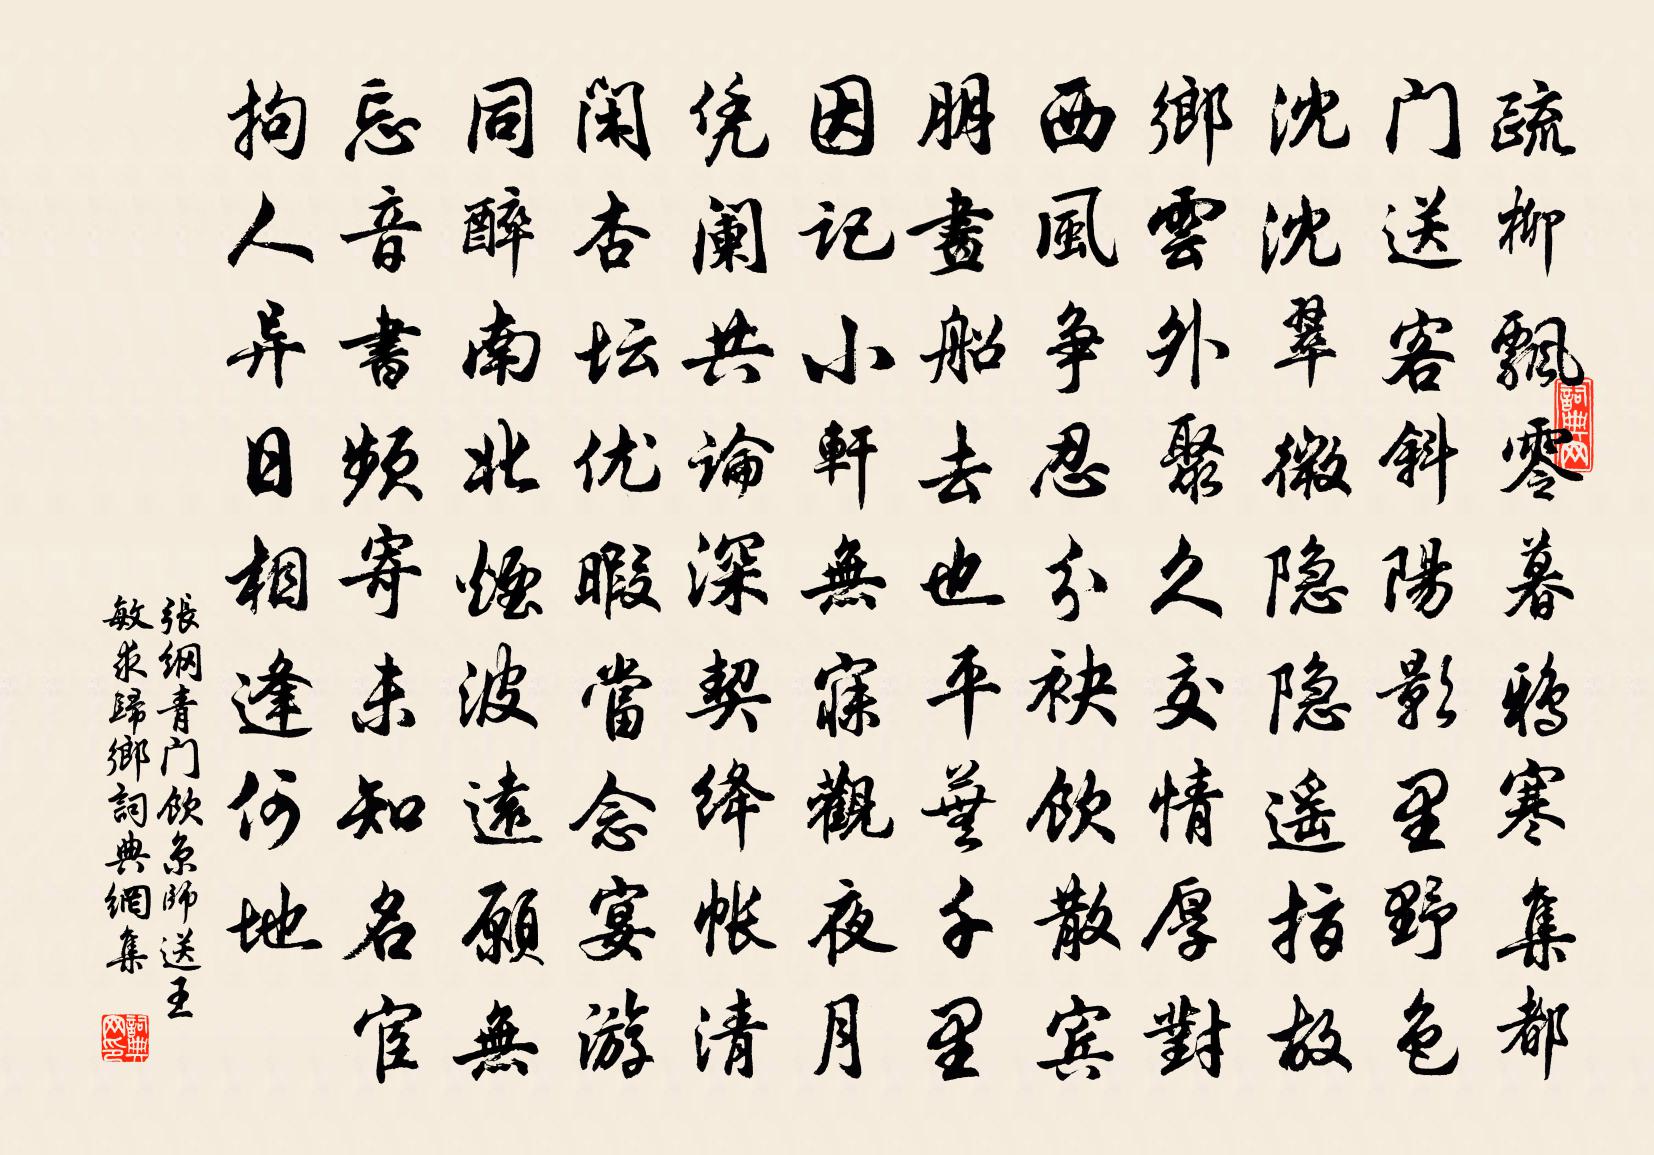 疏柳飄零暮鴉寒集都
门送客斜陽影里野色
沈沈翠微隐隐遥指故
鄉雲外聚久交情厚對
西風争忍分袂飲散宾
朋畫船去也平蕪千里
因记小軒無寐觀夜月
凭阑共論深契绛帐清
闲杏坛优暇當念宴游
同醉南北煙波遠願無
忘音書頻寄未知名宦
拘人异日相逢何地
張綱青门飲京師送王
敏求歸鄉詞典網集
詞典网
詞典网印